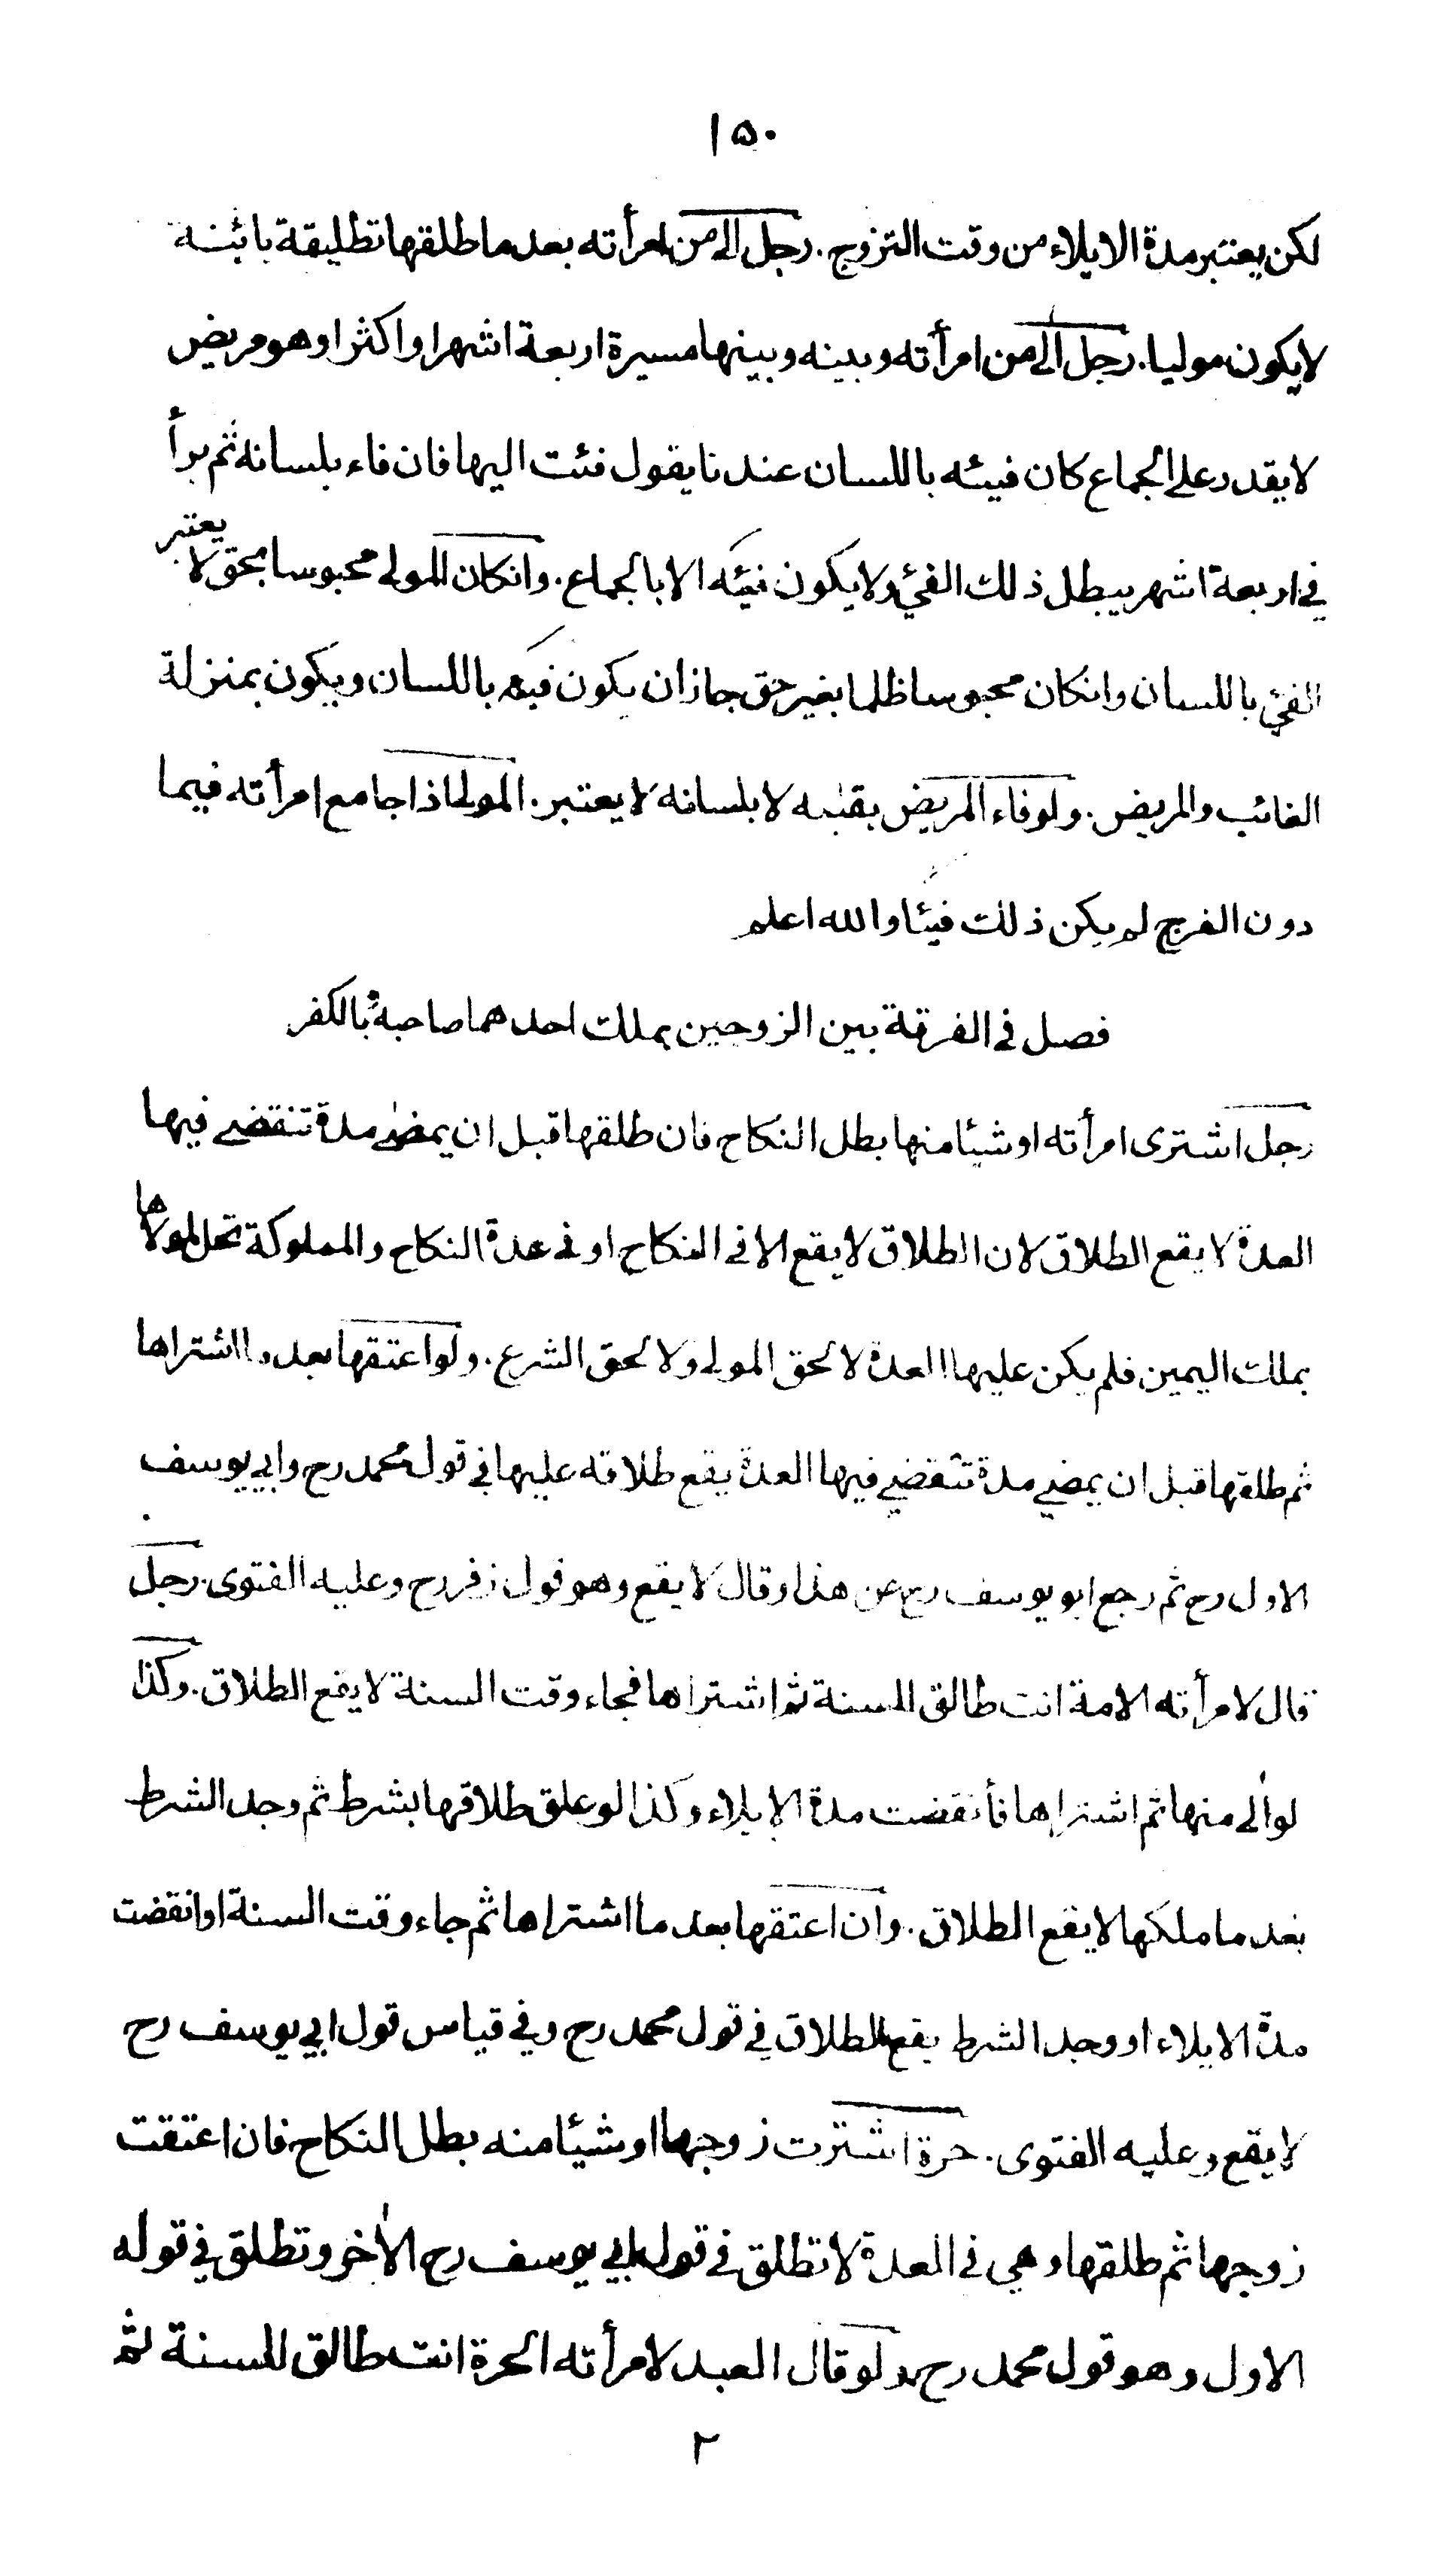 ١٥٠
لكن يعتبر مدة الايلاء من وقت التزوج. رجل الى من امرأته بعد ما طلقها تطليقة بائنة
لا يكون موليا. رجل آلى من امرأته وبينه وبينها مسيرة اربعة اشهر او اكثر او هو مريض
لا يقدر على الجماع كان فيئه باللسان عندنا يقول فئت اليها فان فاء بلسانه ثم برأ
في اربعة اشهر يبطل ذلك الفيئ ولا يكون فيئه الا بالجماع. وانكان المولى محبوسا بحق لا يعتبر
الفيئ باللسان وانكان محبوسا ظلما بغير حق جاز ان يكون فيئه باللسان ويكون بمنزلة
الغائب والمريض. ولو فاء المريض بقلبه لا بلسانه لا يعتبر. المولى اذا جامع امرأته فيما
دون الفرج لم يكن ذلك فيئا والله اعلم
فصل في الفرقة بين الزوجين بملك احدهما صاحبه وبالكفر
رجل اشترى امرأته او شيئا منها بطل النكاح فان طلقها قبل ان يمضى مدة تنقضى فيها
العدة لا يقع الطلاق لان الطلاق لا يقع الا في النكاح او في عدة النكاح والمملوكة تحل لمولاها
بملك اليمين فلم يكن عليها العدة لا لحق المولى ولا لحق الشرع. ولو اعتقها بعد ما اشتراها
ثم طلقها قبل ان يمضي مدة تنقضي فيها العدة يقع طلاقه عليها في قول محمد رح وابي يوسف
الاول رح ثم رجع ابو يوسف رح عن هذا وقال لا يقع وهو قول زفر رح وعليه الفتوى. رجل
قال لامرأته الامة انت طالق للسنة ثم اشتراها فجاء وقت السنة لا يقع الطلاق. وكذا
لو آلى منها ثم اشتراها فأنقضت مدة الايلاء وكذا لو علق طلاقها بشرط ثم وجد الشرط
بعد ما ملكها لا يقع الطلاق. وان اعتقها بعد ما اشتراها ثم جاء وقت السنة او انقضت
مدة الايلاء او وجد الشرط يقع الطلاق في قول محمد رح وفي قياس قول ابي يوسف رح
لا يقع وعليه الفتوى. حرة اشترت زوجها او شيئا منه بطل النكاح فان اعتقت
زوجها ثم طلقها وهي في العدة لا تطلق في قول ابي يوسف رح الآخر وتطلق في قوله
الاول وهو قول محمد رح ولو قال العبد لامرأته الحرة انت طالق للسنة ثم
٢